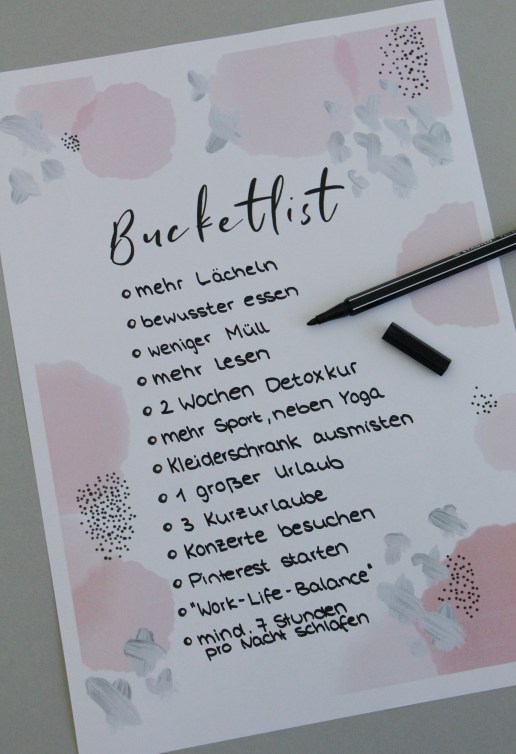 Bucketlist
mehr Lächeln
bewusster essen
weniger Müll
mehr lesen
2 Wochen Detoxkur
mehr Sport, neben Yoga
Kleiderschrank ausmisten
1 großer Urlaub
3 Kurzurlaube
Konzerte besuchen
Pinterest starten
"Work-Life-Balance"
mind. 7 Stunden
pro Nacht schlafen